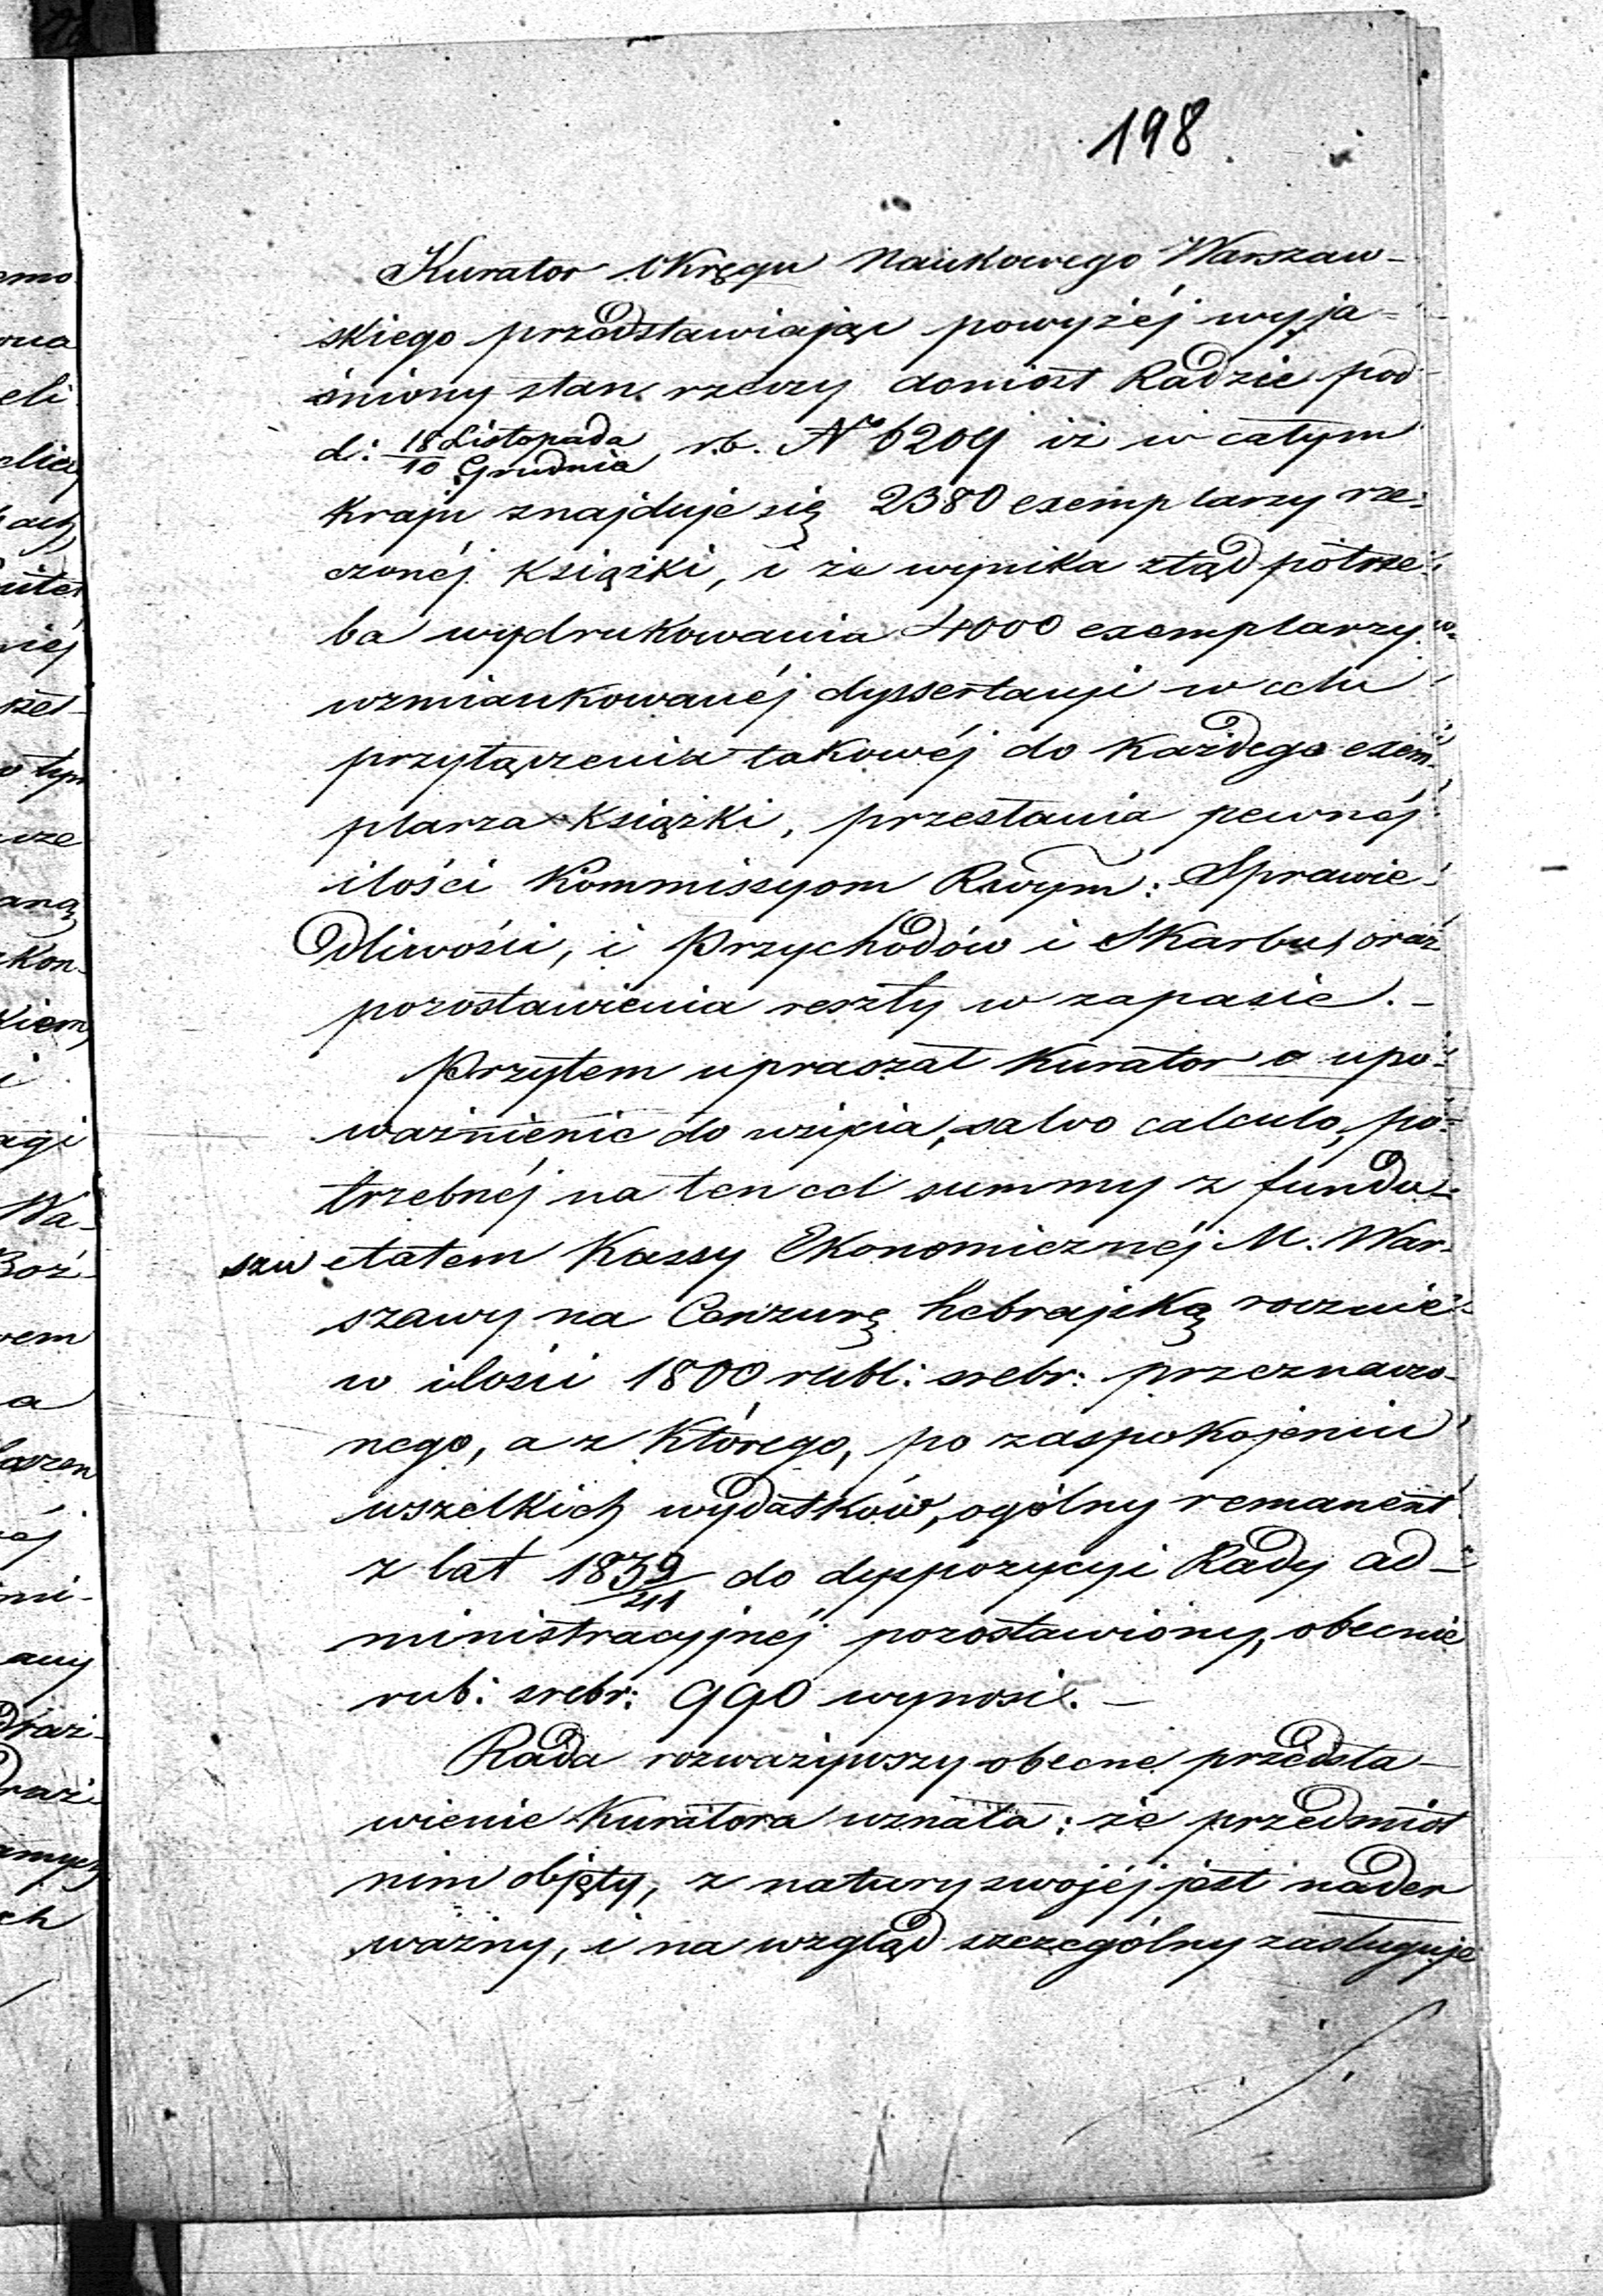 198.
Kurator Okręgu Naukowego Warszaw-
skiego przedstawiając powyżéj wyja=
śniony stan rzeczy doniosł Radzie pod
d: 18 Listopada/10 Grudnia r.b. No 6209 iż w całym
kraju znajduje się 2380 exemplarzy rze=
czonéj książki, i że wynika ztąd potrze=
ba wydrukowania 4000 exemplarzy
wzmiankowanéj dyssertacyi w celu
przyłączenia takowéj do każdego exem-
plarza książki, przesłania pewnéj
ilości Kommissyom Rwym: Sprawie-
dliwości, i Przychodów i Skarbu, oraz
pozostawienia reszty w zapasie. -
Przytem upraszał Kurator o upo=
ważnienie do wzięcia, salvo calculo, po=
trzebnéj na ten cel summy z fundu-
szu etatem Kassy Ekonomicznéj M. War-
szawy na Cenzurę hebrajską rocznie
w ilości 1800 rubl: srebr: przeznaczo-
nego, a z którego, po zaspokojeniu
wszelkich wydatków, ogólny remanent
z lat 1839/41 do dyspozycyi Rady ad-
ministracyjnéj pozostawiony, obecnie
rub: srebr: 990 wynosi. -
Rada rozważywszy obecne przedsta-
wienie Kuratora uznała: że przedmiot
nim objęty, z natury swojéj jest nader
ważny, i na wzgląd szczególny zasługuje